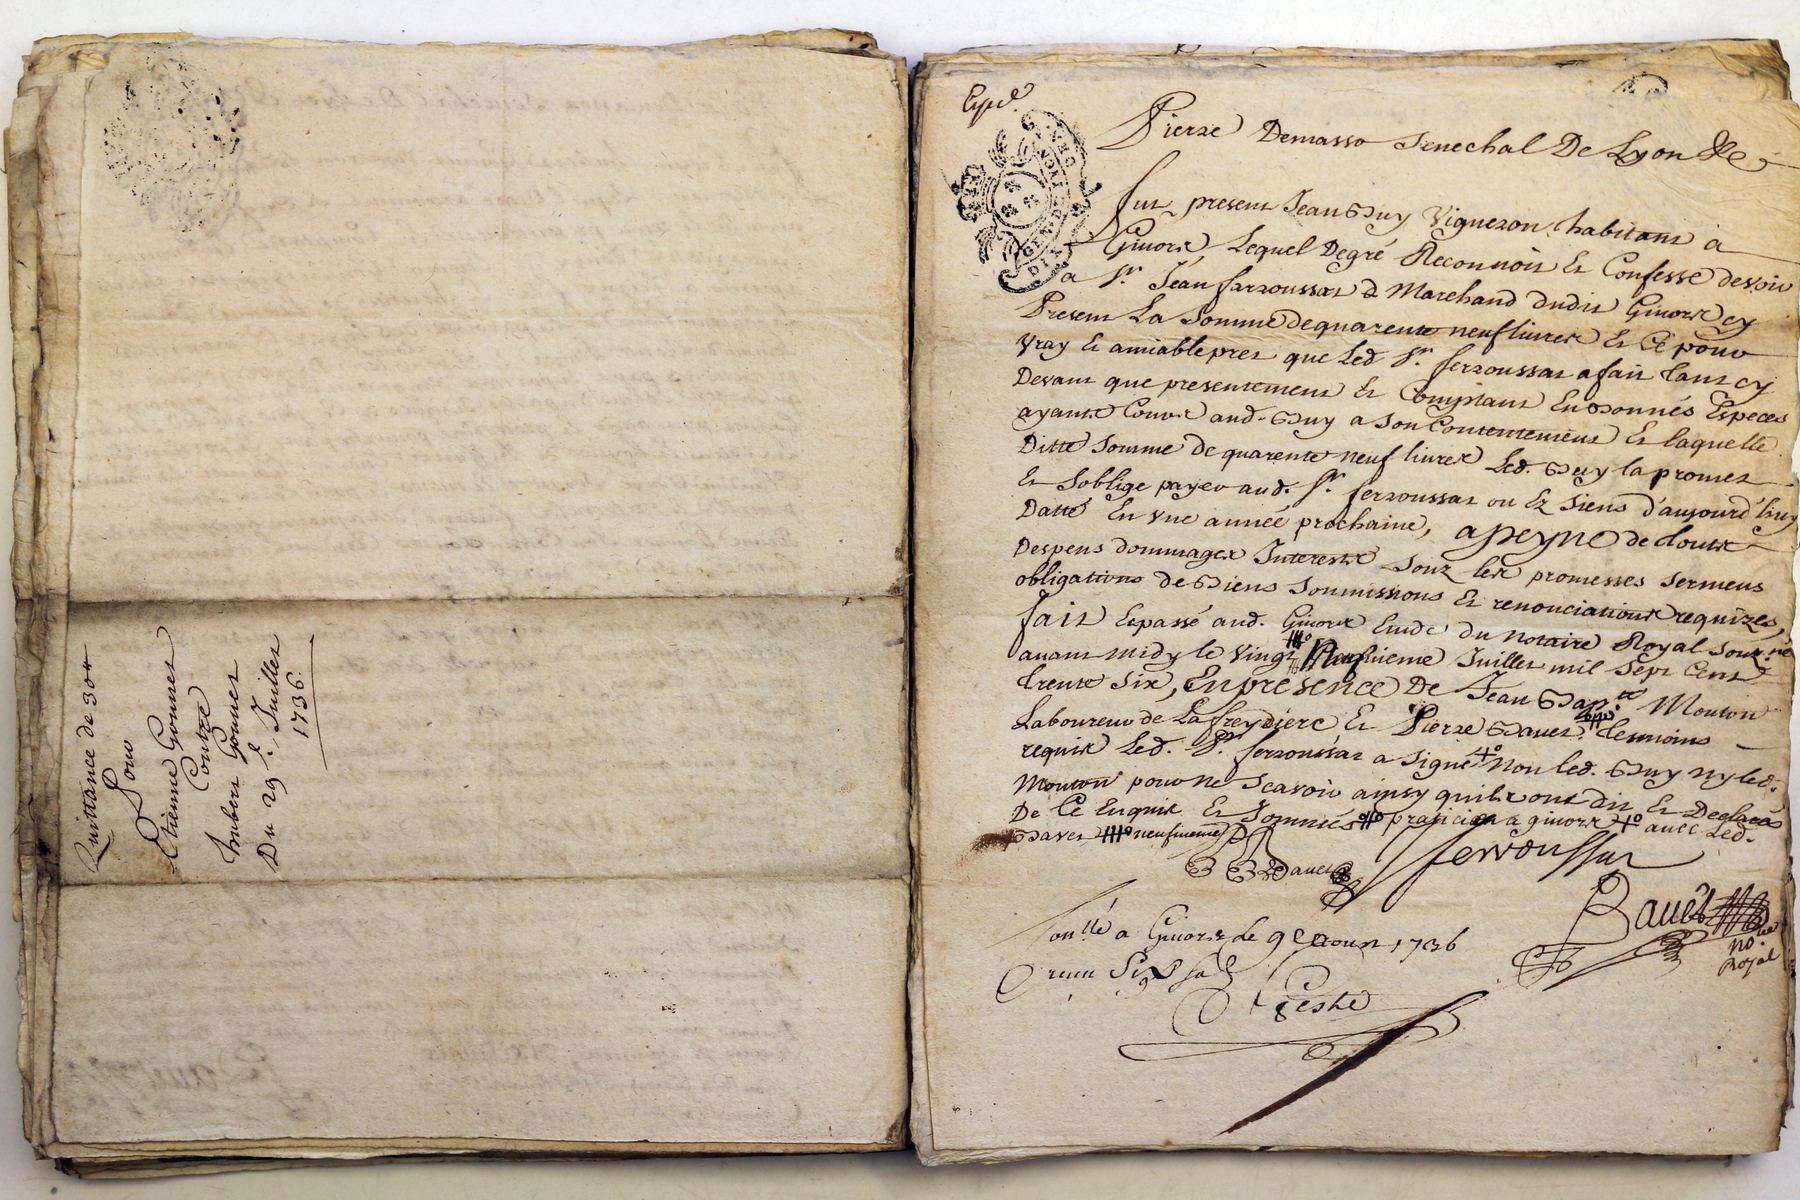 Quittance de 30 lt
Pour
Etienne Gonnet
Contre
Imbert Gonnet
Du 29e. Juillet
1736.
Exped.
Pierre Demasso Senechal De Lyon &c
GEN. DE LYON
fut present Jean Guy Vigneron habitant a
Givors, Lequel Degré Reconnoit Et Confesse devoir
a Sr. Jean farroussat Marchand dudit Givors cy
Present La Somme de quarente neuf livres Et Ce pour
Vray Et amiable pret que Led. Sr. ferroussat a fait tant cy
Devant que presentement Et Comptant En Bonnés Especes
ayants Cours aud. Guy a Son Contentement Et laquelle
Ditte Somme de quarente neuf livres Led. Guy la promet
Et Soblige payer aud. Sr. ferroussat ou Ez Siens d'aujourd'huy
Datté En Vne année prochaine, apeyne de touts
Despens dommages Interests Souz les promesses Sermens
obligations de Biens Soumissions Et renonciations requizes,
fait Et passé aud. Givors Etude du Notaire Royal Souz.né
avant midy le Vingt Neufuieme Juillet mil Sept Cent
trente Six, En presence De Jean Bap.te Mouton
Laboureur de La freydiere Et Pierre Bavet tesmoins
requis Led. Sr. ferroussat a Signé 4° Non led. Guy ny led.
Mouton pour ne Scavoir ainsy quils ont dit Et Declaré
De Ce Enquis Et Sommés praticien a givors 4° avec Led.
Bavet neufuieme
Bavet ferroussat
Bavet
no.re
Royal
Con.llé a Givors le 9e Aoust 1736
receu Six s.